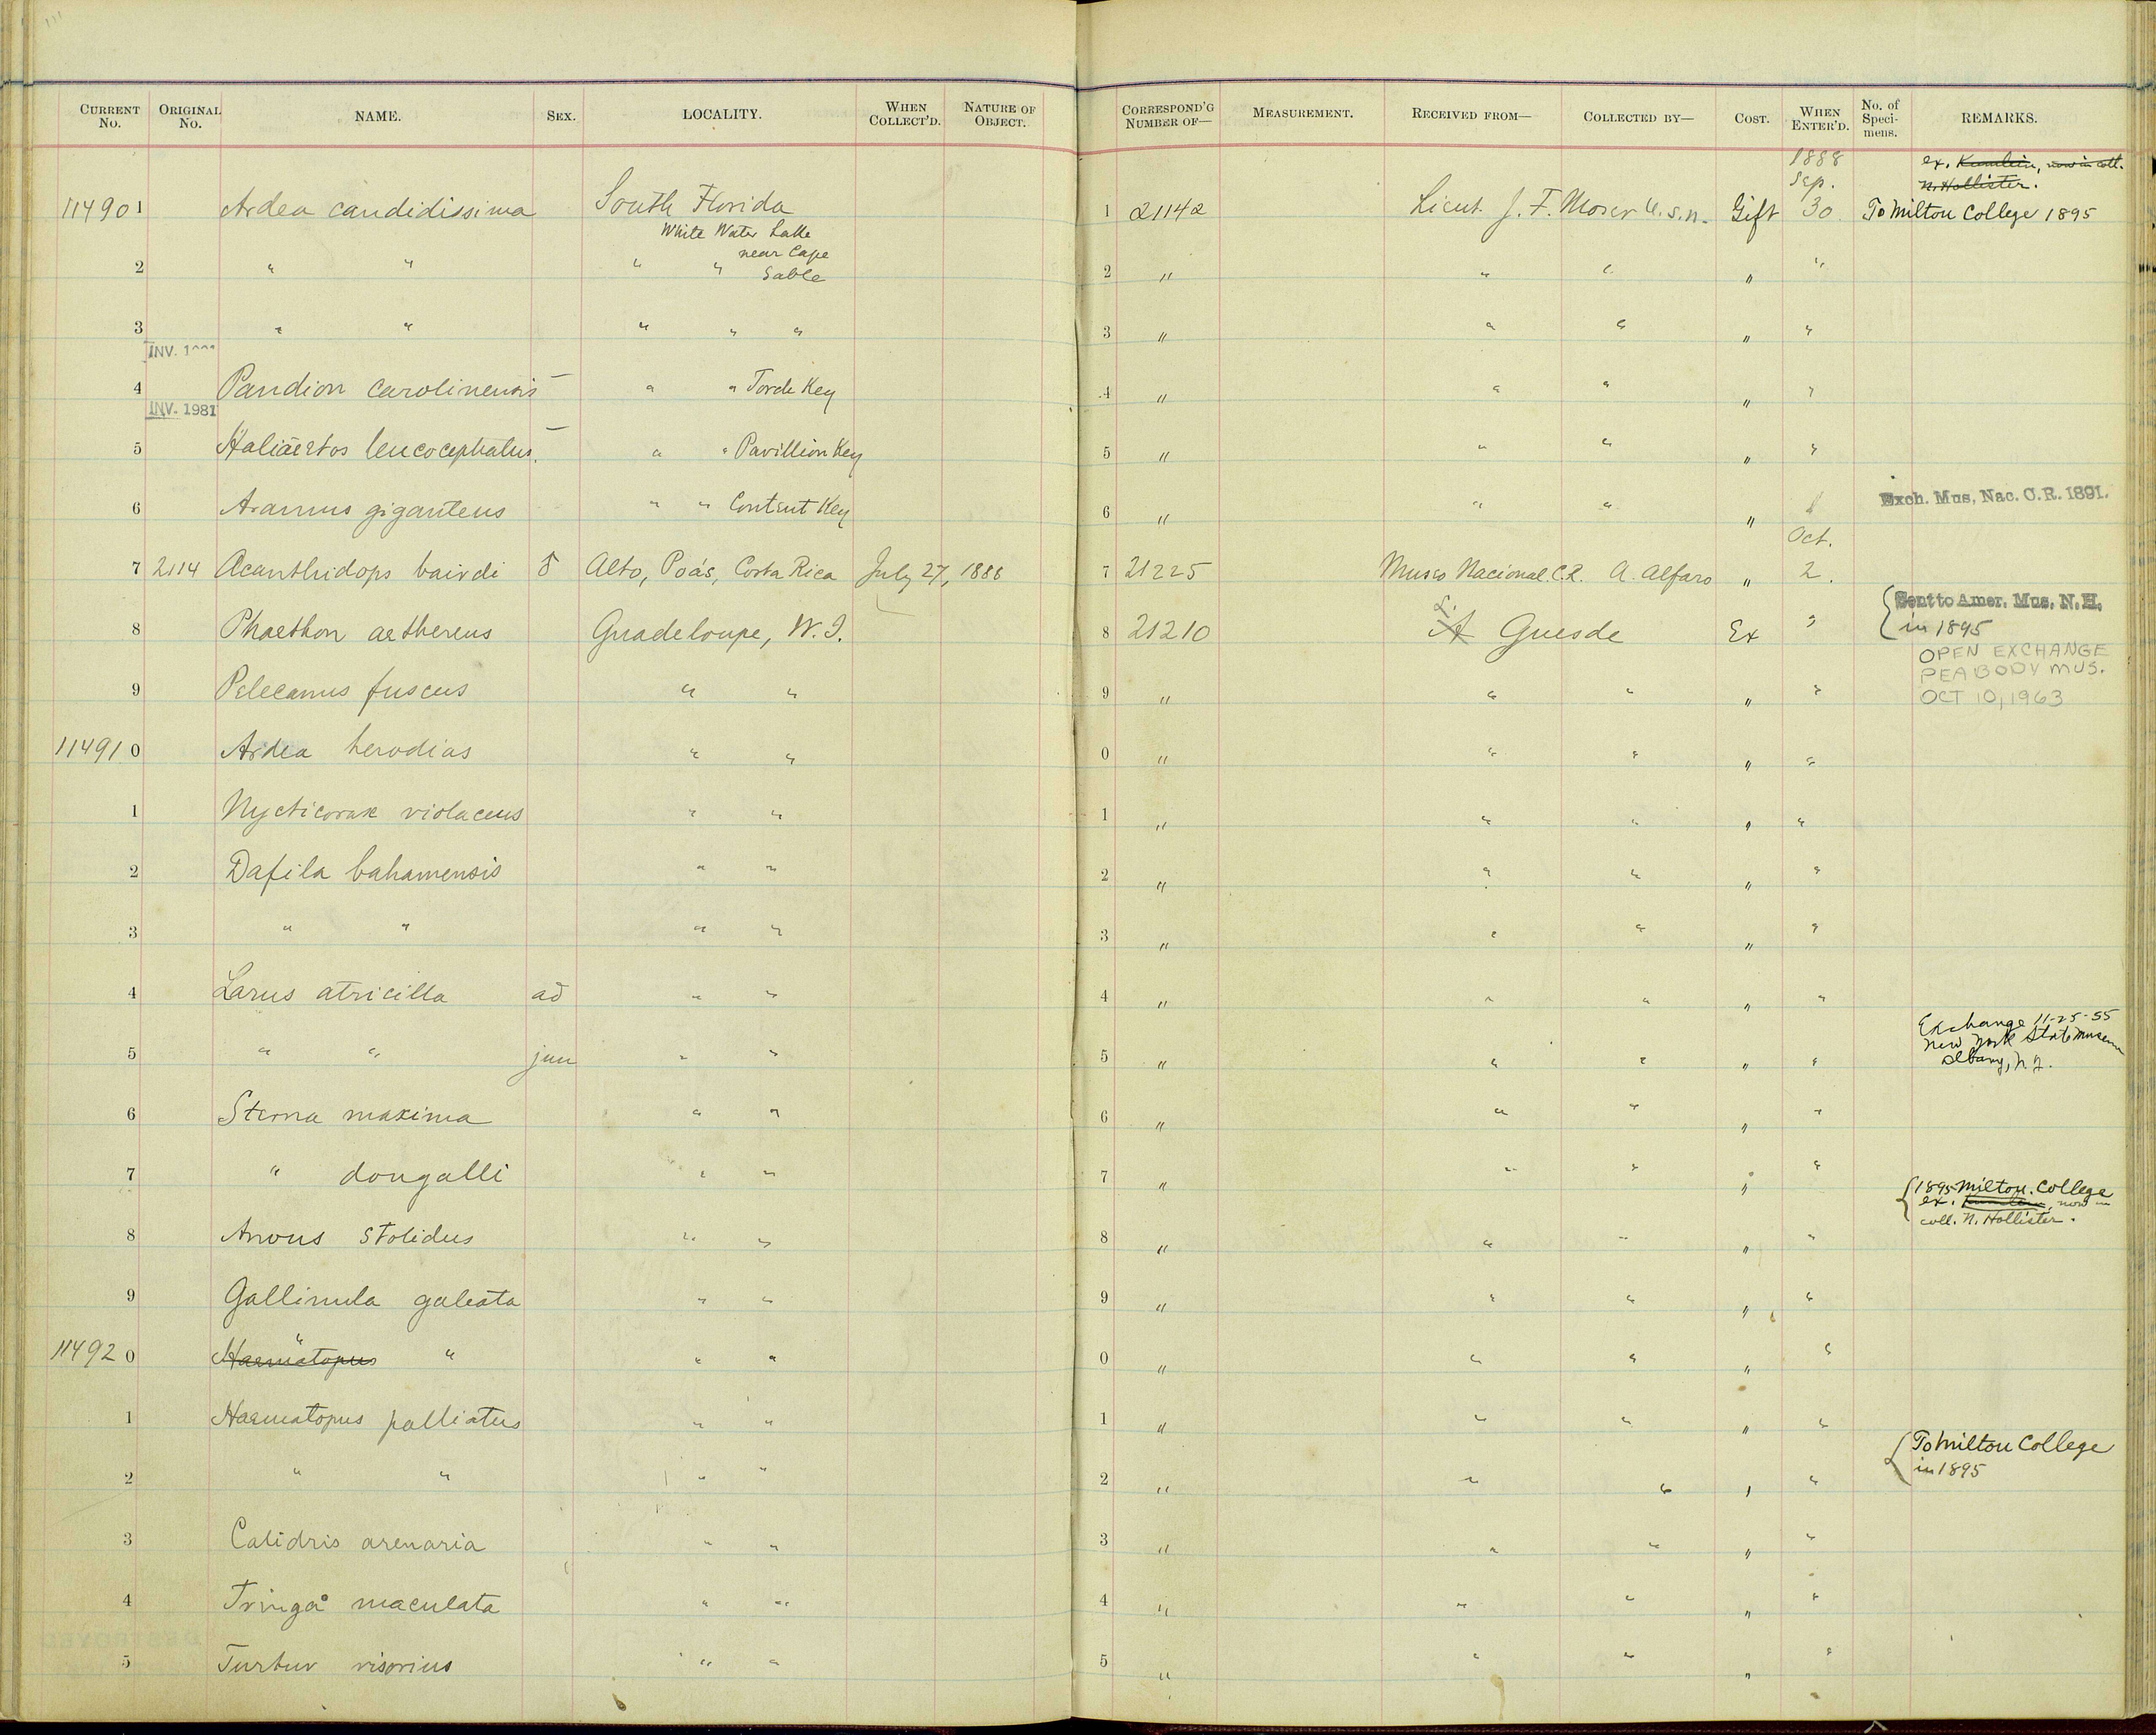 CURRENT No. ORIGINAL No. NAME. SEX. LOCALITY. WHEN COLLECT'D. NATURE OF OBJECT. CORRESPOND'G NUMBER OF— MEASUREMENT. RECEIVED FROM— COLLECTED BY— COST. WHEN ENTER'D. No. of Speci-mens. REMARKS.
1888 ex. Kumlien, now in coll.
Sep. N. Hollister.
114901 Ardea candidissima South Florida 1 21142 Lieut. J. F. Moser U.S.N. Gift 30 To Milton College 1895
White Water Lake
near Cape
2 " " " " Sable 2 " " " " "
3 " " " " " 3 " " " " "
INV.
4 Pandion carolinensis — " " Torch Key 4 " " " " "
INV. 1981
5 Haliäetos leucocephalus. — " " Pavillion Key 5 " " " " "
6 Aramus giganteus " " Content Key 6 " " " " " Exch. Mus. Nac. C.R. 1891.
Oct.
7 2114 Acanthidops bairdi Alto, Poás, Costa Rica July 27, 1888 7 21225 Museo Nacional C.R. A. Alfaro " 2.
8 Phaethon aethereus Guadeloupe, W.I. 8 21210 L. A Guesde Ex " Sent to Amer. Mus. N.H.
in 1895
OPEN EXCHANGE
PEABODY MUS.
9 Pelecanus fuscus " " 9 " " " " " OCT 10, 1963
114910 Ardea herodias " " 0 " " " " "
1 Nycticorax violaceus " " 1 " " " " "
2 Dafila bahamensis " " 2 " " " " "
3 " " " " 3 " " " " "
4 Larus atricilla ad " " 4 " " " " "
Exchange 11-25-55
New York State Museum
5 " " juv " " 5 " " " " " Albany, N.Y.
6 Sterna maxima " " 6 " " " " "
7 " dougalli " " 7 " " " " "
1895 Milton College
ex. Kumlien, now in
coll. N. Hollister.
8 Anous stolidus " " 8 " " " " "
9 Gallinula galeata " " 9 " " " " "
"
114920 Haematopus " " " 0 " " " " "
1 Haematopus palliatus " " 1 " " " " "
To Milton College
2 " " " " 2 " " " " " in 1895
3 Calidris arenaria " " 3 " " " " "
4 Tringa maculata " " 4 " " " " "
5 Turtur risorius " " 5 " " " " "